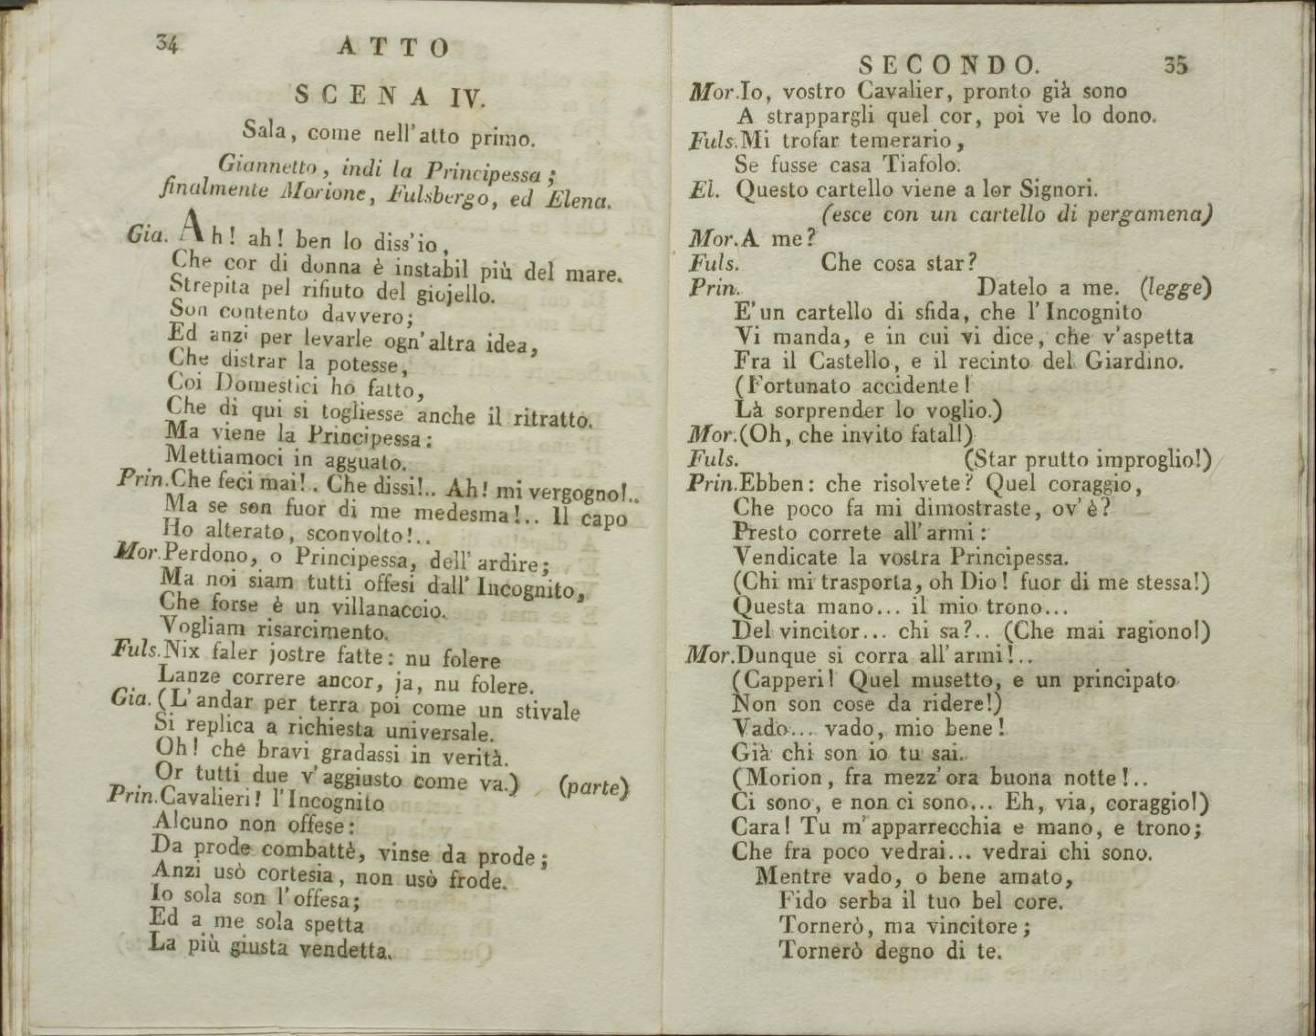 34
ATTO
SCENA IV.
Sala, come nell'atto primo.
Giannetto, indi la Principessa;
finalmente Morione, Fulsbergo, ed Elena.
Gia. Ah! ah! ben lo diss'io,
Che cor di donna è instabil più del mare.
Strepita pel rifiuto del giojello.
Son contento davvero;
Ed anzi per levarle ogn'altra idea,
Che distrar la potesse,
Coi Domestici ho fatto,
Che di qui si togliesse anche il ritratto.
Ma viene la Principessa:
Mettiamoci in agguato.
Prin. Che feci mai!.. Che dissi!.. Ah! mi vergogno!..
Ma se son fuor di me medesma!.. Il capo
Ho alterato, sconvolto!..
Mor. Perdono, o Principessa, dell'ardire;
Ma noi siam tutti offesi dall'Incognito,
Che forse è un villanaccio.
Vogliam risarcimento.
Fuls. Nix faler jostre fatte: nu folere
Lanze correre ancor, ja, nu folere.
Gia. (L'andar per terra poi come un stivale
Si replica a richiesta universale.
Oh! che bravi gradassi in verità.
Or tutti due v'aggiusto come va.) (parte)
Prin. Cavalieri! l'Incognito
Alcuno non offese:
Da prode combattè, vinse da prode;
Anzi usò cortesia, non usò frode.
Io sola son l'offesa;
Ed a me sola spetta
La più giusta vendetta.
SECONDO.
35
Mor. Io, vostro Cavalier, pronto già sono
A strappargli quel cor, poi ve lo dono.
Fuls. Mi trofar temerario,
Se fusse casa Tiafolo.
El. Questo cartello viene a lor Signori.
(esce con un cartello di pergamena)
Mor. A me?
Fuls. Che cosa star?
Prin. Datelo a me. (legge)
E'un cartello di sfida, che l'Incognito
Vi manda, e in cui vi dice, che v'aspetta
Fra il Castello, e il recinto del Giardino.
(Fortunato accidente!
Là sorprender lo voglio.)
Mor. (Oh, che invito fatal!)
Fuls. (Star prutto improglio!)
Prin. Ebben: che risolvete? Quel coraggio,
Che poco fa mi dimostraste, ov'è?
Presto correte all'armi:
Vendicate la vostra Principessa.
(Chi mi trasporta, oh Dio! fuor di me stessa!)
Questa mano... il mio trono...
Del vincitor... chi sa?.. (Che mai ragiono!)
Mor. Dunque si corra all'armi!..
(Capperi! Quel musetto, e un principato
Non son cose da ridere!)
Vado... vado, mio bene!
Già chi son io tu sai.
(Morion, fra mezz'ora buona notte!..
Ci sono, e non ci sono... Eh, via, coraggio!)
Cara! Tu m'apparrecchia e mano, e trono;
Che fra poco vedrai... vedrai chi sono.
Mentre vado, o bene amato,
Fido serba il tuo bel core.
Tornerò, ma vincitore;
Tornerò degno di te.